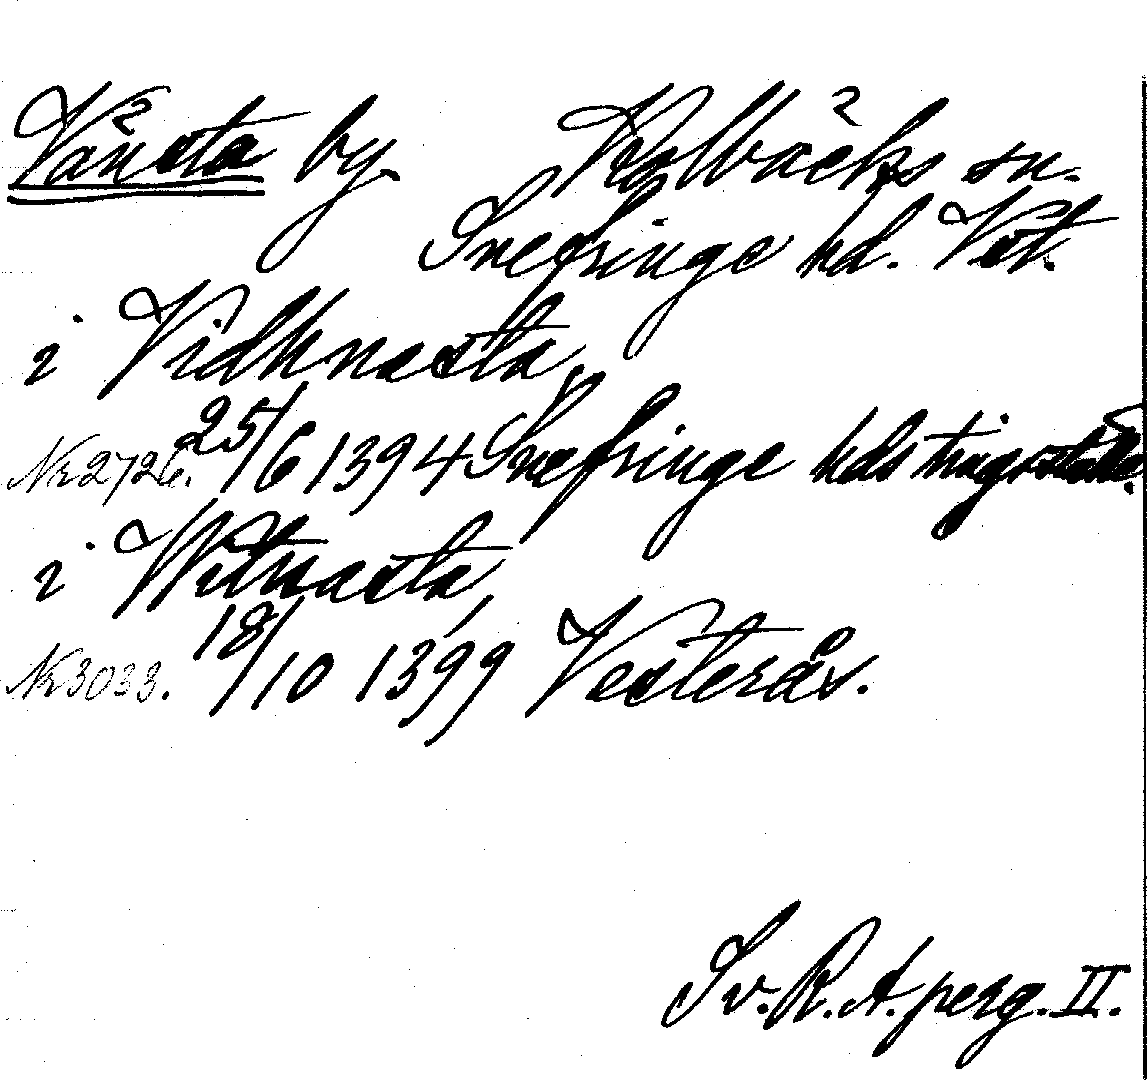 Vänsta by. Kolbäcks sn.
Snefringe hd. Vstm.
i Vidhnasta
Nr 2726. 25/6 1394 Snefringe hds tingställe.
i Witnasta
Nr 3033. 18/10 1399 Vesterås.
Sv. R. A. perg. II.